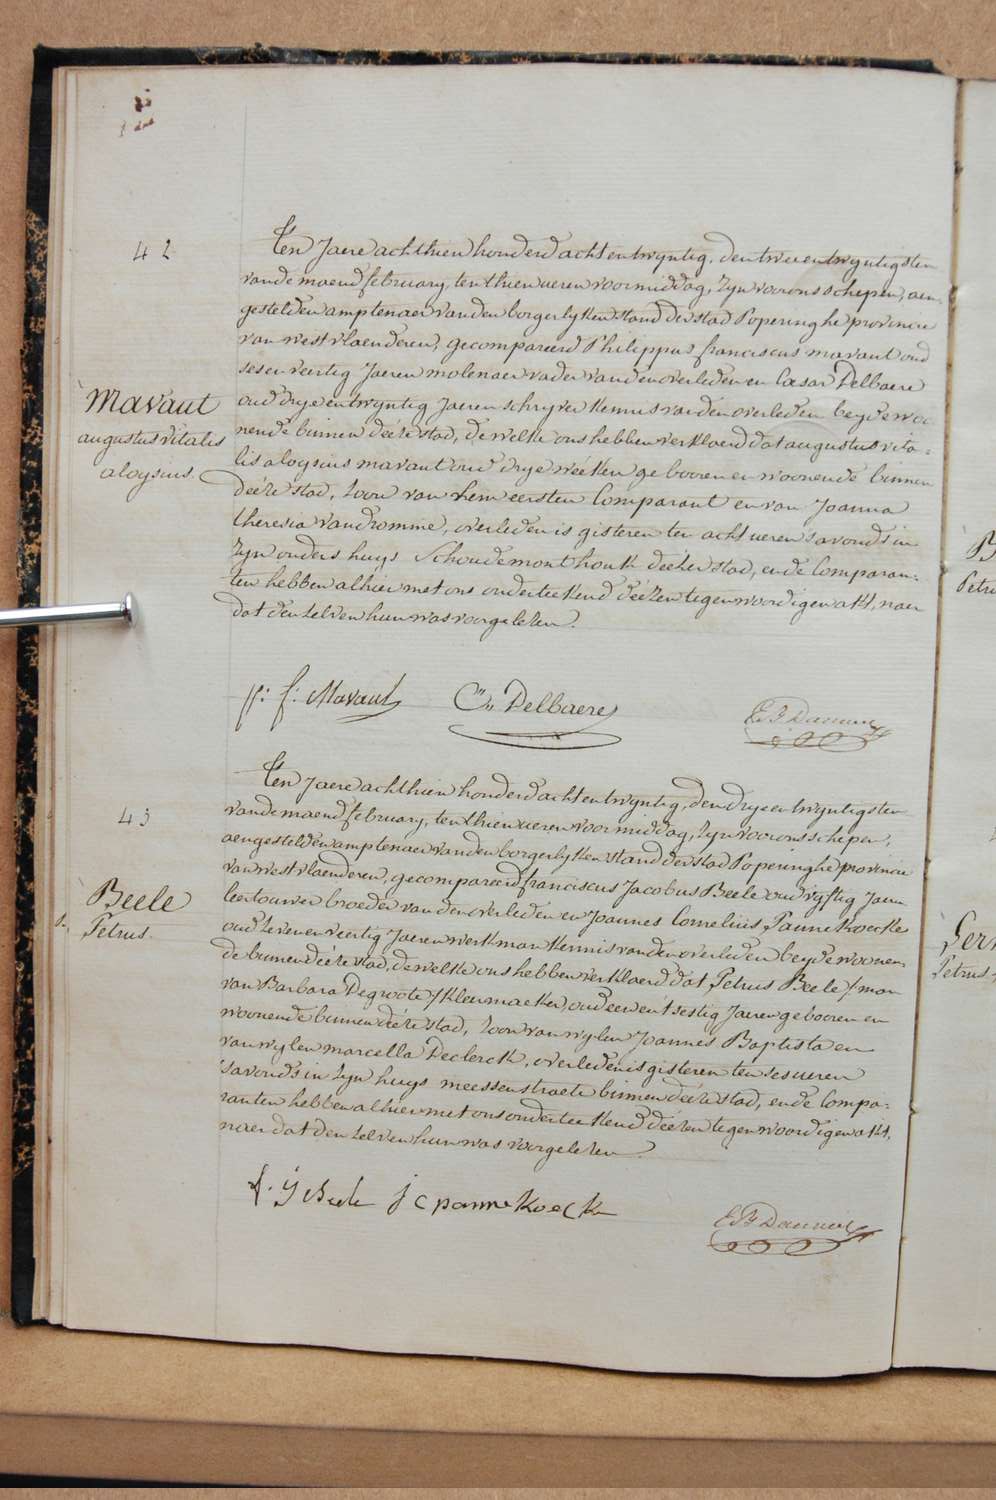 42
Mavaut
augustus vitalis
aloysius.
Ten Jaere achthien honderd acht en twyntig, den twee en twyntigsten
van de maend february, ten thien ueren voormiddag, zyn voor ons schepen, aen-
gestelden amptenaer van den borgerlyken stand der stad Poperinghe provincie
van westvlaenderen, gecompareerd Philippus franciscus mavaut oud
ses en veertig Jaeren molenaer vader van den overleden en Cæsar Delbaere
oud drye en twyntig Jaeren schryver kennis van den overleden beyde woo-
nende binnen deéze stad, de welke ons hebben verklaerd dat augustus vita-
lis aloysius mavaut oud drye wéeken gebooren en woonende binnen
deéze stad, zoon van hem eersten Comparant en van Joanna
theresia vandromme, overleden is gisteren ten acht ueren 's avonds in
zyn ouders huys Schoudemonthouk deézer stad, en de Comparan-
ten hebben alhier met ons onderteekend deézen tegenwoordigen akt, naer
dat den zelven hun was voorgelezen.
p: f: Mavaut
C. Delbaere
43
Beele
Petrus.
Ten Jaere achthien honderd acht en twyntig, den drye en twyntigsten
van de maend february, ten thien ueren voormiddag, zyn voor ons schepen,
aengestelden amptenaer van den borgerlyken stand der stad Poperinghe provincie
van westvlaenderen, gecompareerd franciscus Jacobus Beele oud vyftig Jaeren
leertouwer broeder van den overleden en Joannes Cornelius Pannekoecke
oud zeven en veertig Jaeren werkman kennis van den overleden beyde woonen-
de binnen deéze stad, de welke ons hebben verklaerd dat Petrus Beele / man
van Barbara Degroote / kleermaeker, oud een en t sestig Jaeren gebooren en
woonende binnen deéze stad, zoon van wylen Joannes Baptista en
van wylen marcella Declerck, overleden is gisteren ten ses ueren
's avonds in zyn huys meessenstraete binnen deéze stad, en de Compa-
ranten hebben alhier met ons onderteekend deézen tegenwoordigen akt,
naer dat den zelven hun was voorgelezen.
f. J Beele
j c pannekoecke
Petrus